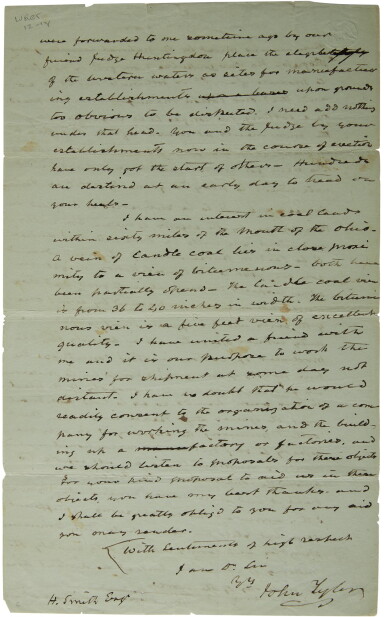 were forwarded to me sometime ago by our
friend Judge Huntingdon place the eligibility
of the western waters as sites for manufactur
ing establishments upon grounds
too obvious to be disputed. I need add nothing
under that head. You and the Judge by your
establishments now in the course of erection
have only got the start of others — Hundreds
are destind at an early day to tread on
your heels —
I have an interest in coal lands
within sixty miles of the mouth of the Ohio.
A vein of Candle coal lies in close proxi
mity to a vein of bitumenous — both have
been partially opend — The Candle coal vein
is from 36 to 40 inches in width. The bitumi
nous vein is a five feet vein of excellent
quality — I have united a friend with
me and it is our purpose to work the
mines for shipment at some day not
distant. I have no doubt that he would
readily consent to the organization of a com
pany for working the mines, and the build
ing up a factory or factories, and
we should listen to proposals for these objects
For your kind proposal to aid us in these
objects, you have my best thanks, and
I shall be greatly oblig'd to you for any aid
you may render.
With sentiments of high respect
I am Dr Sir
Yrs John Tyler
H. Smith Esqr